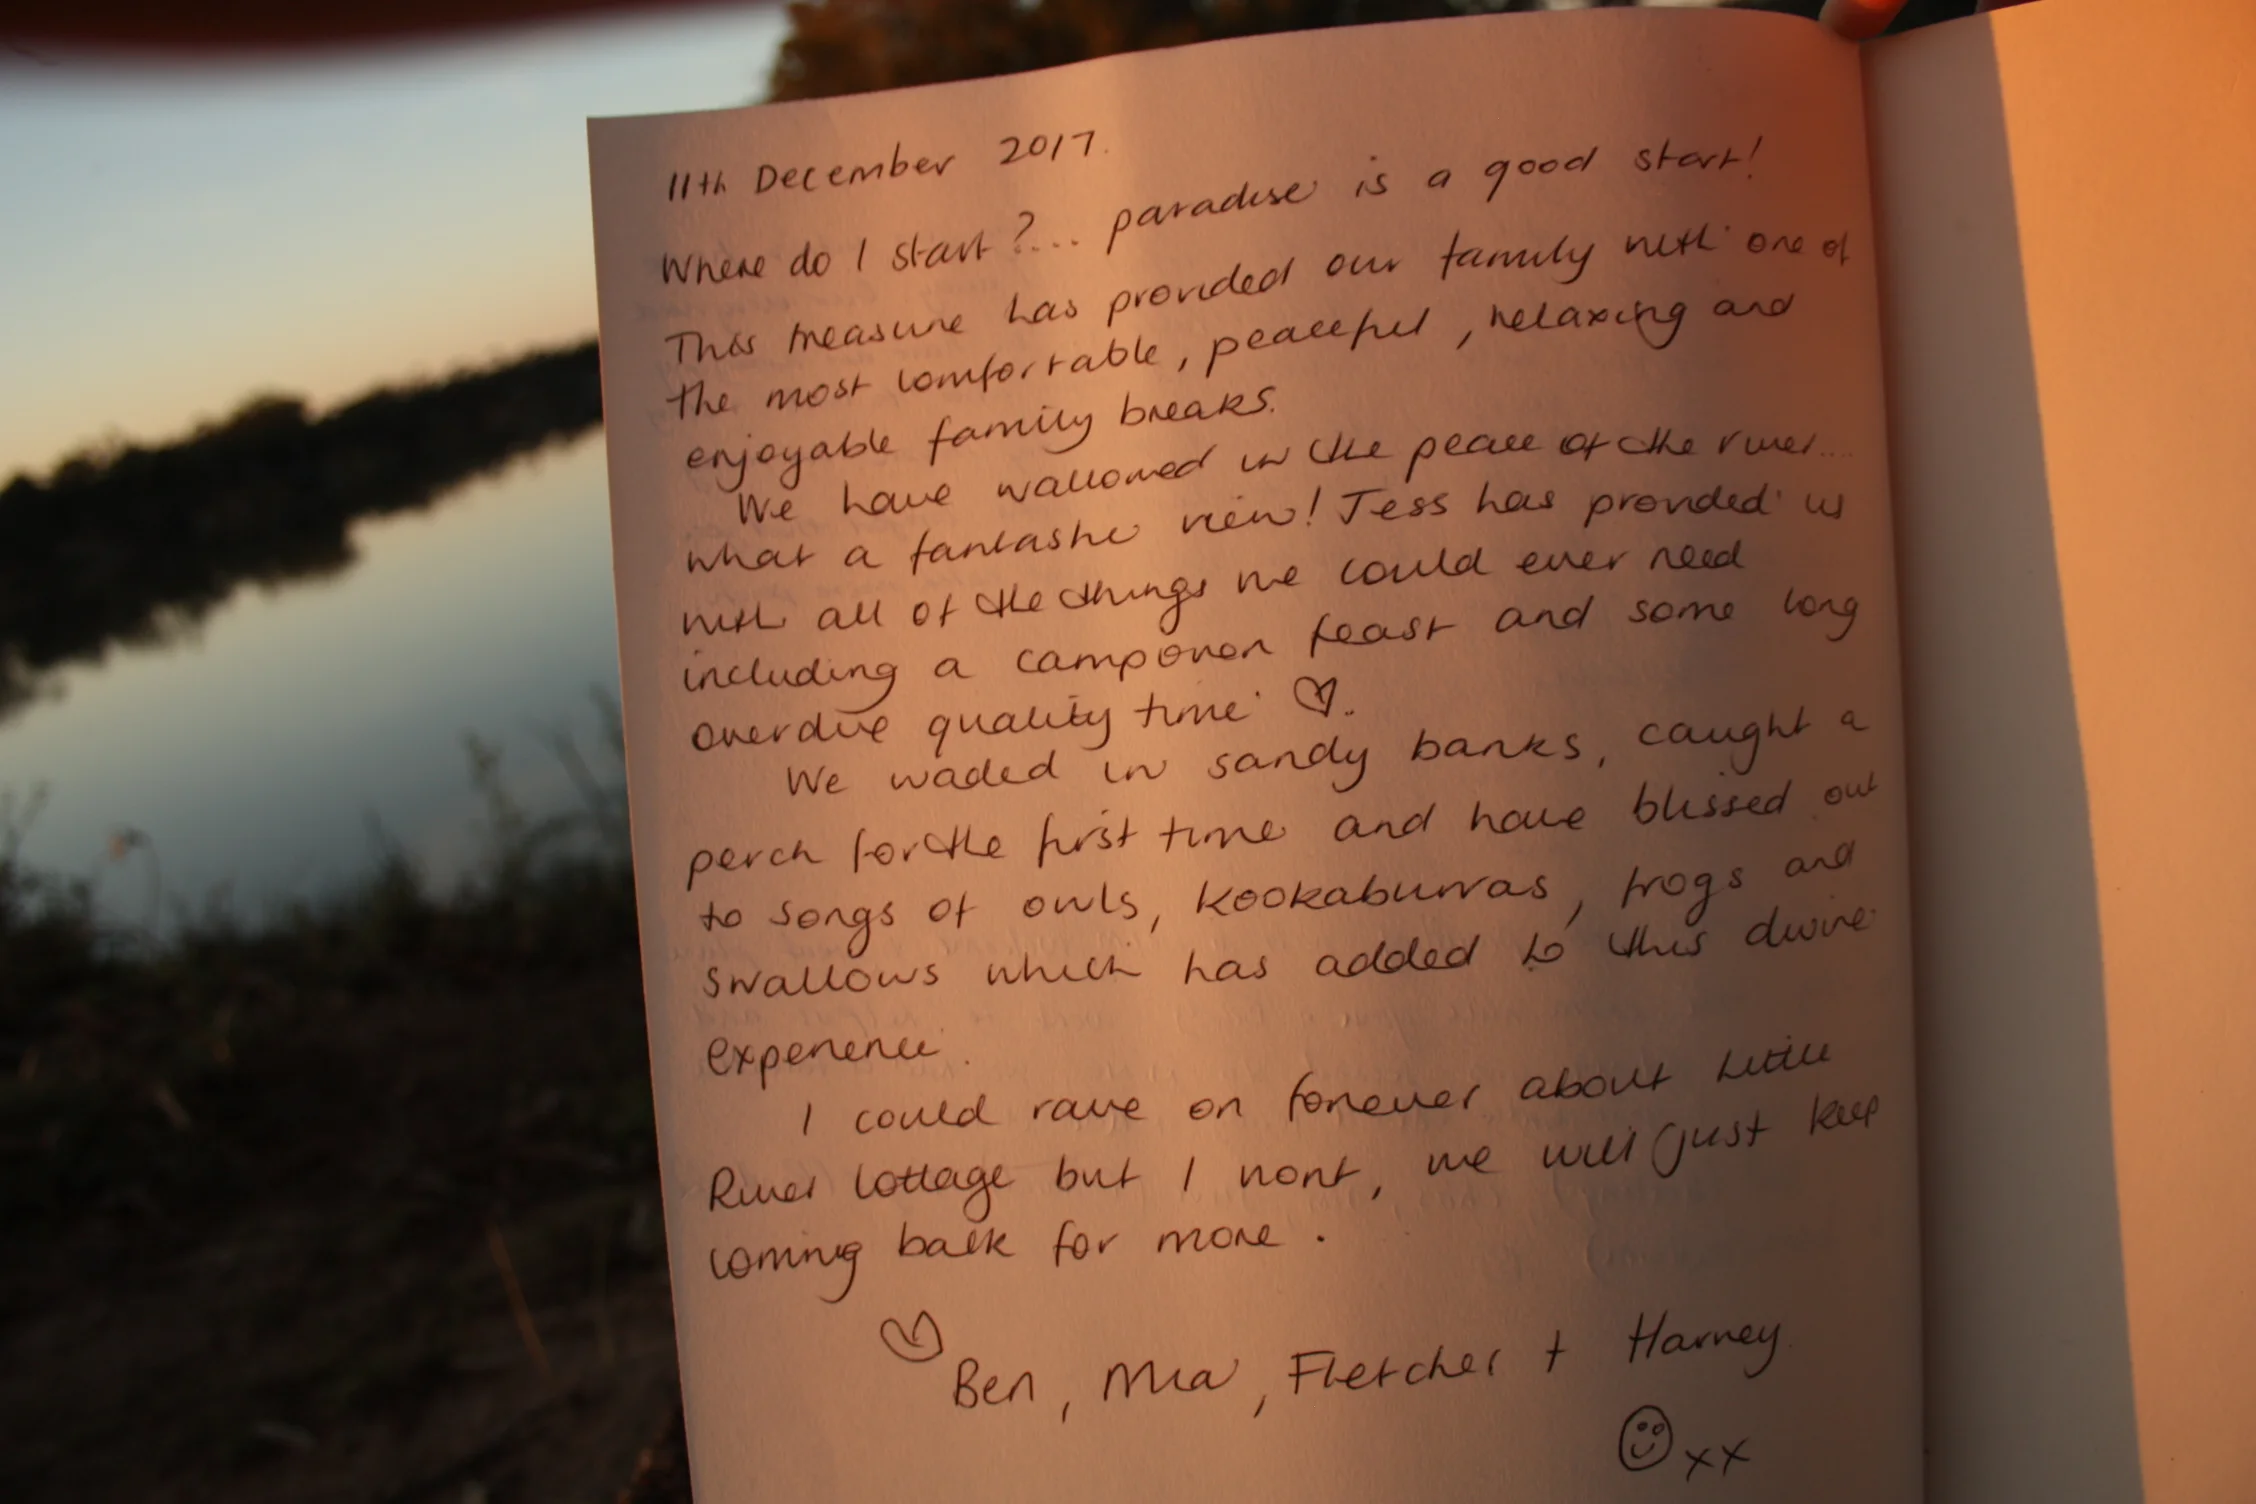 11th December 2017.
Where do I start?... paradise is a good start!
This treasure has provided our family with one of
the most comfortable, peaceful, relaxing and
enjoyable family breaks.
We have wallowed in the peace of the river....
what a fantastic view! Jess has provided us
with all of the things we could ever need
including a campoven feast and some long
overdue quality time ♡.
We waded in sandy banks, caught a
perch for the first time and have blissed out
to songs of owls, kookaburras, frogs and
swallows which has added to this divine
experience.
I could rave on forever about Little
River Cottage but I wont, we will just keep
coming back for more.
♡ Ben, Mia, Fletcher + Harvey
☺ xx